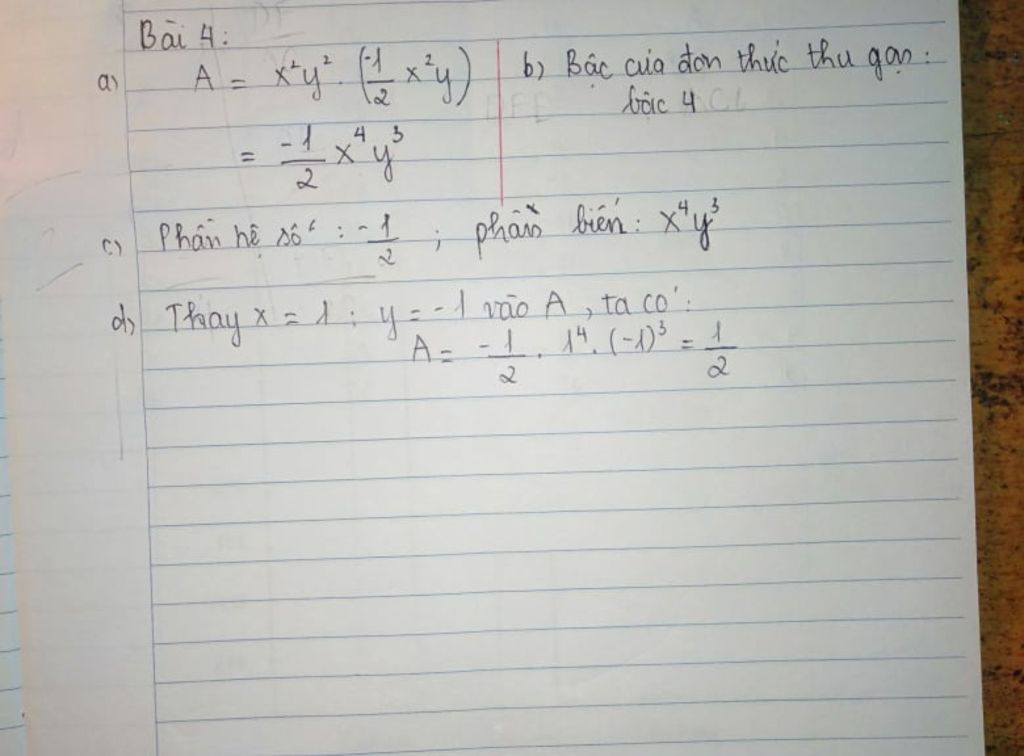 Bài 4:
a) A = x²y² . (-1/2 x²y)
= -1/2 x⁴y³
b) Bậc của đơn thức thu gọn:
bậc 4
c) Phần hệ số : -1/2 ; phần biến: x⁴y³
d) Thay x = 1 ; y = -1 vào A, ta có:
A = -1/2 . 1⁴. (-1)³ = 1/2